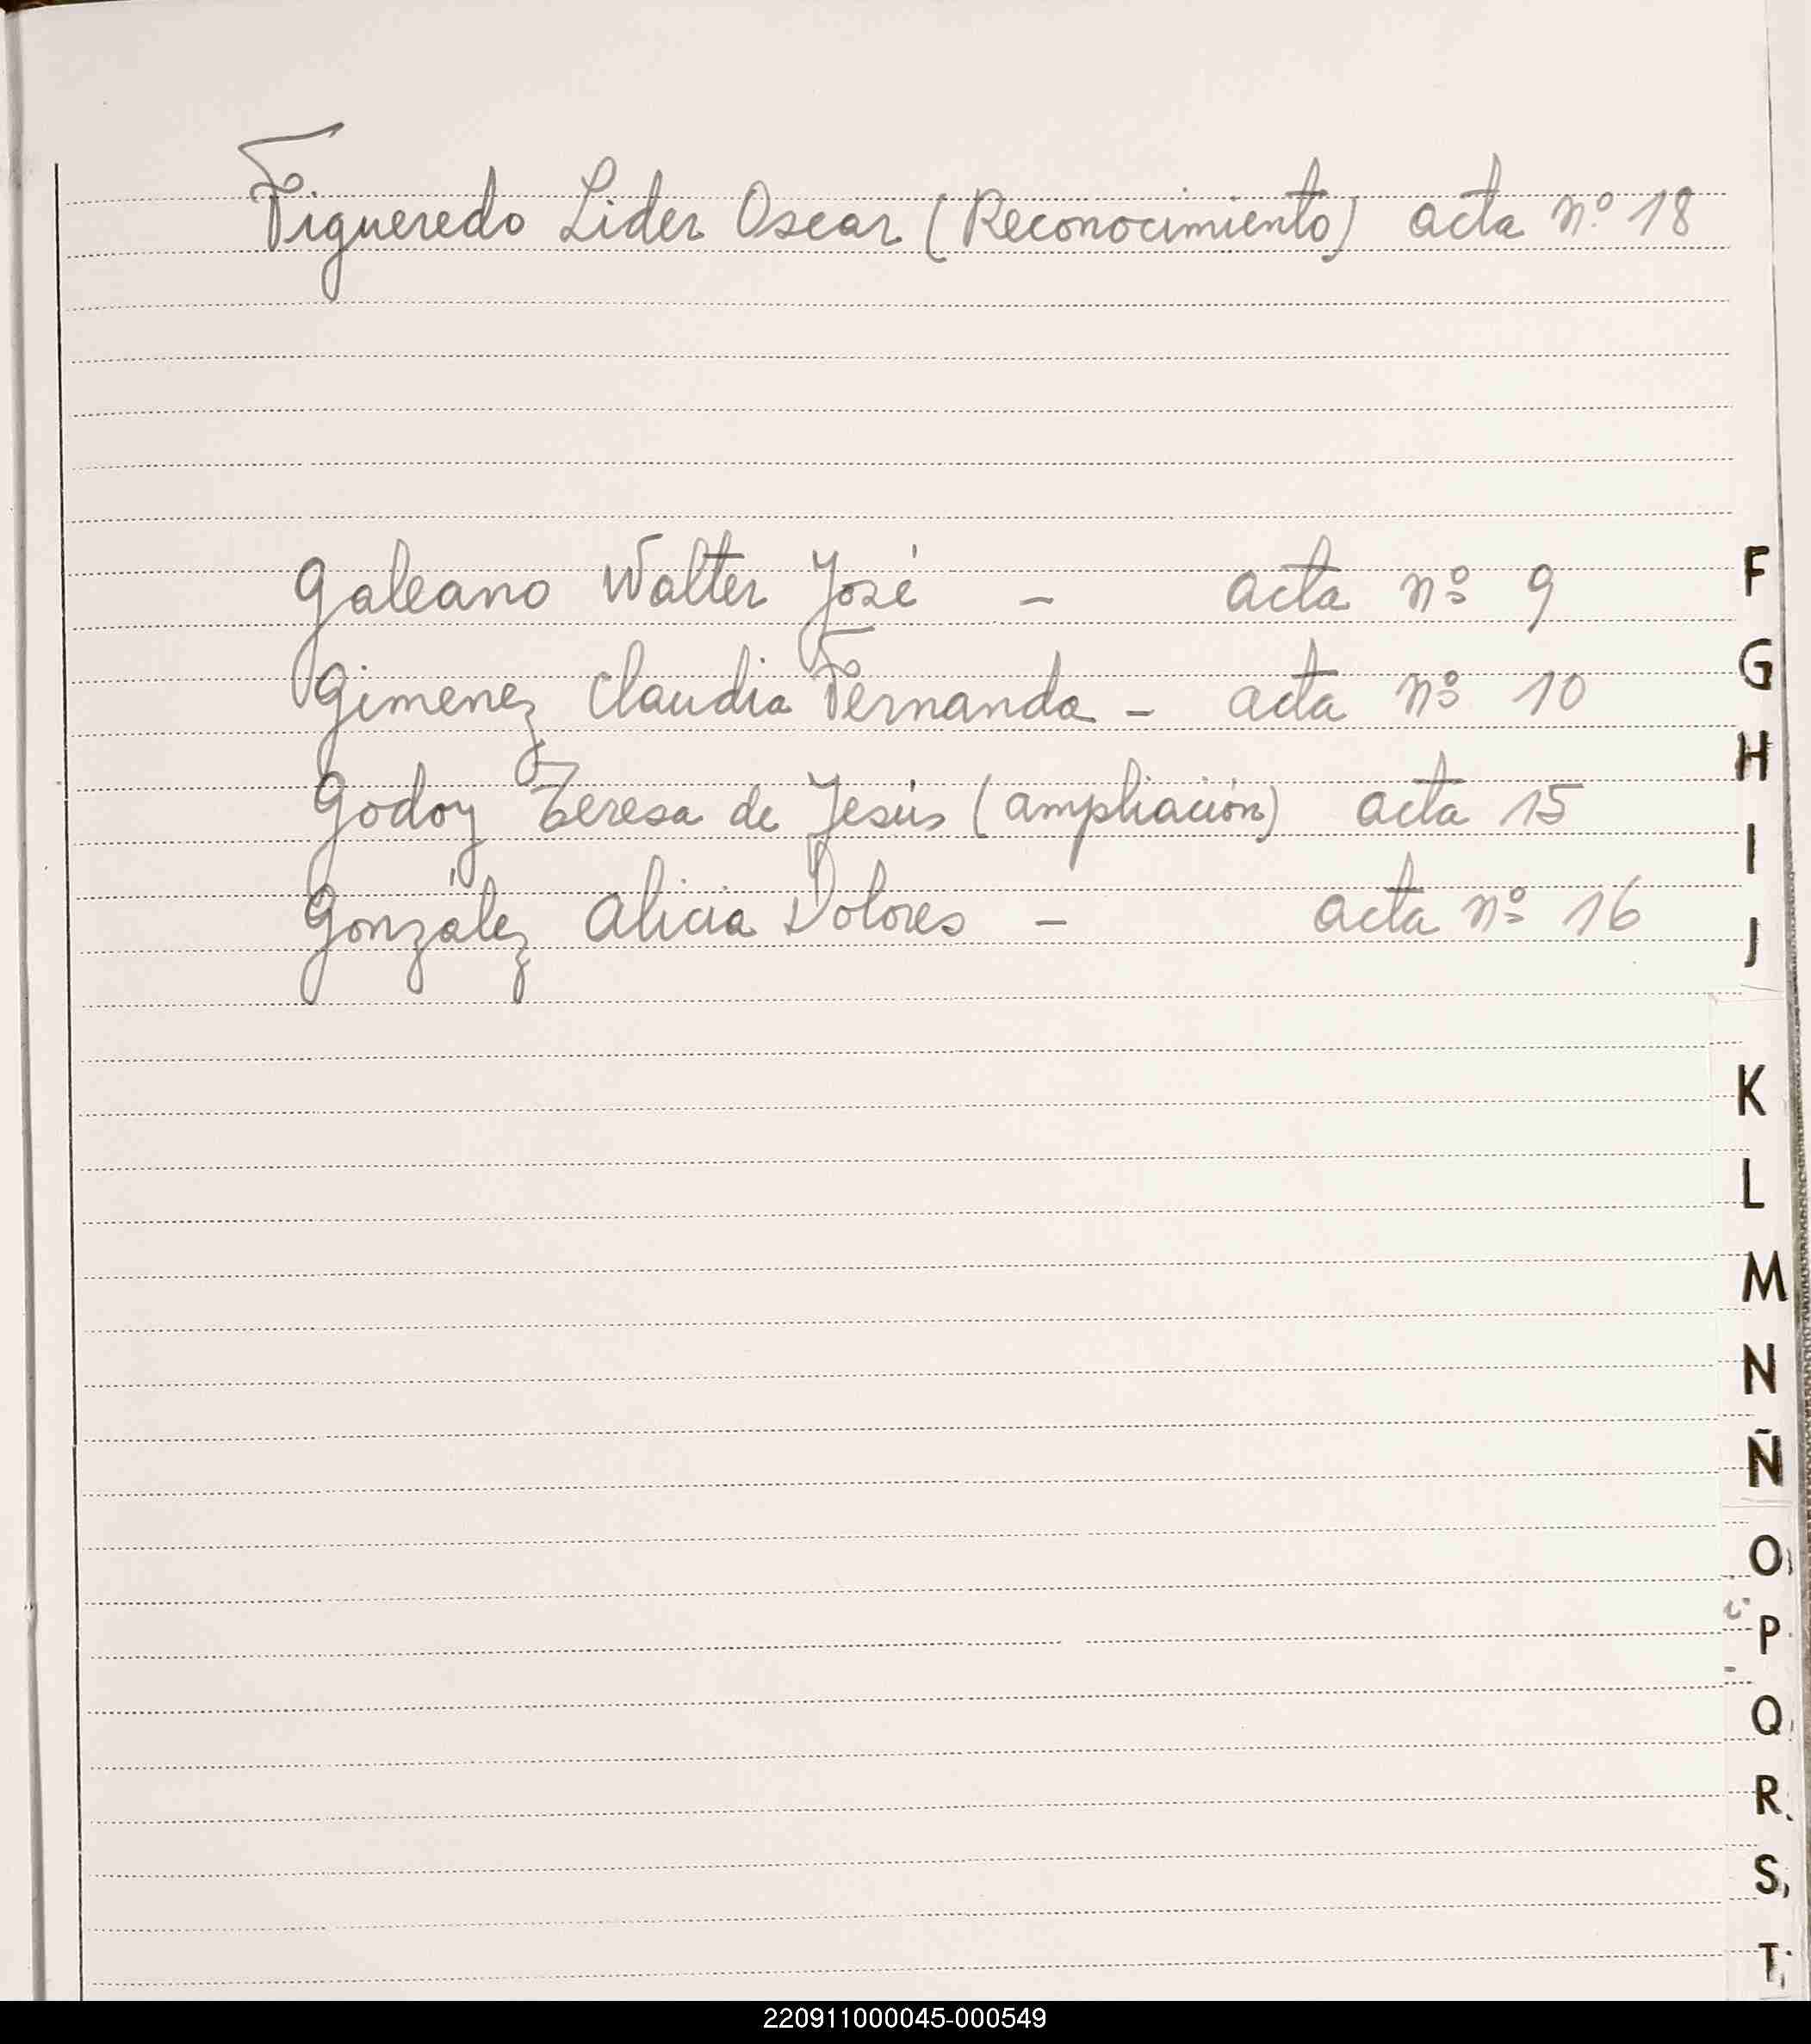 Figueredo Lider Oscar (Reconocimiento) acta nº 18
Galeano Walter José - acta nº 9
Gimenez Claudia Fernanda - acta nº 10
Godoy Teresa de Jesús (ampliación) acta 15
González Alicia Dolores - acta nº 16
F
G
H
I
J
K
L
M
N
Ñ
O
P
Q
R
S
T
220911000045-000549